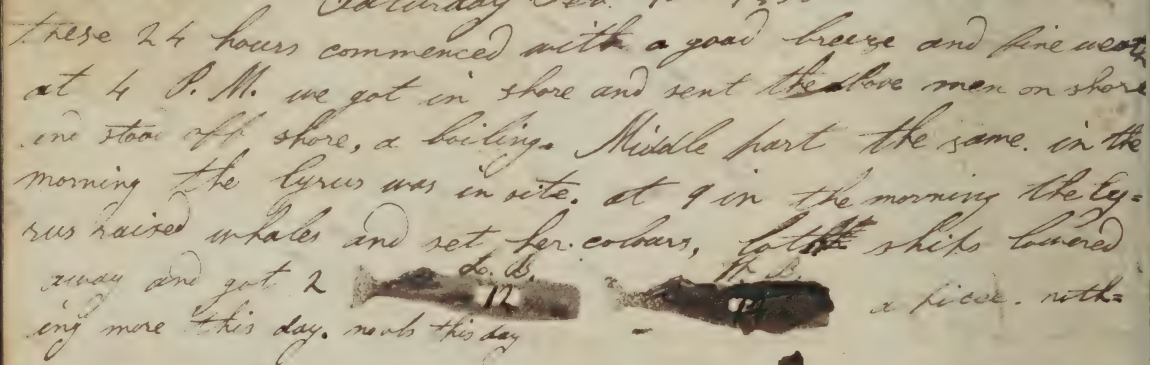 Saturday Feb.
these 24 hours commenced with a good breeze and fine weath
at 4 P. M. we got in shore and sent the above men on shore
and stood off shore, a boiling. Middle part the same. in the
morning the Cyrus was in site. at 9 in the morning the Cy=
rus raised whales and set her colours, both ships lowered
away and got 2 12 a piece. noth=
ing more this day. no obs this day